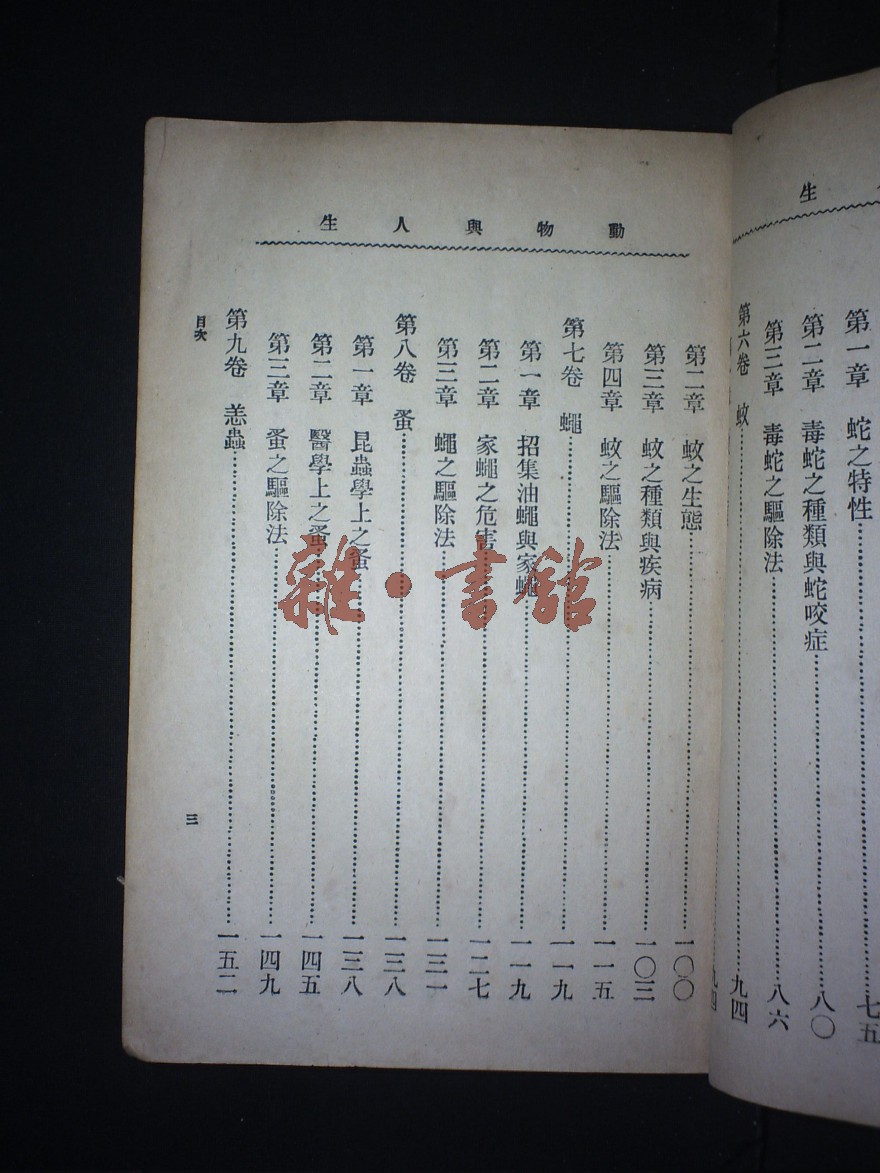 生
第一章 蛇之特性……七五
第二章 毒蛇之種類與蛇咬症……八〇
第三章 毒蛇之驅除法……八六
第六卷 蚊……九四
九四
動物與人生
第二章 蚊之生態……一〇〇
第三章 蚊之種類與疾病……一〇三
第四章 蚊之驅除法……一一五
第七卷 蠅……一一九
第一章 招集油蠅與家蠅……一一九
第二章 家蠅之危害……一二七
第三章 蠅之驅除法……一三一
第八卷 蚤……一三八
第一章 昆蟲學上之蚤……一三八
第二章 醫學上之蚤……一四五
第三章 蚤之驅除法……一四九
第九卷 恙蟲……一五二
目次
三
雜·書館